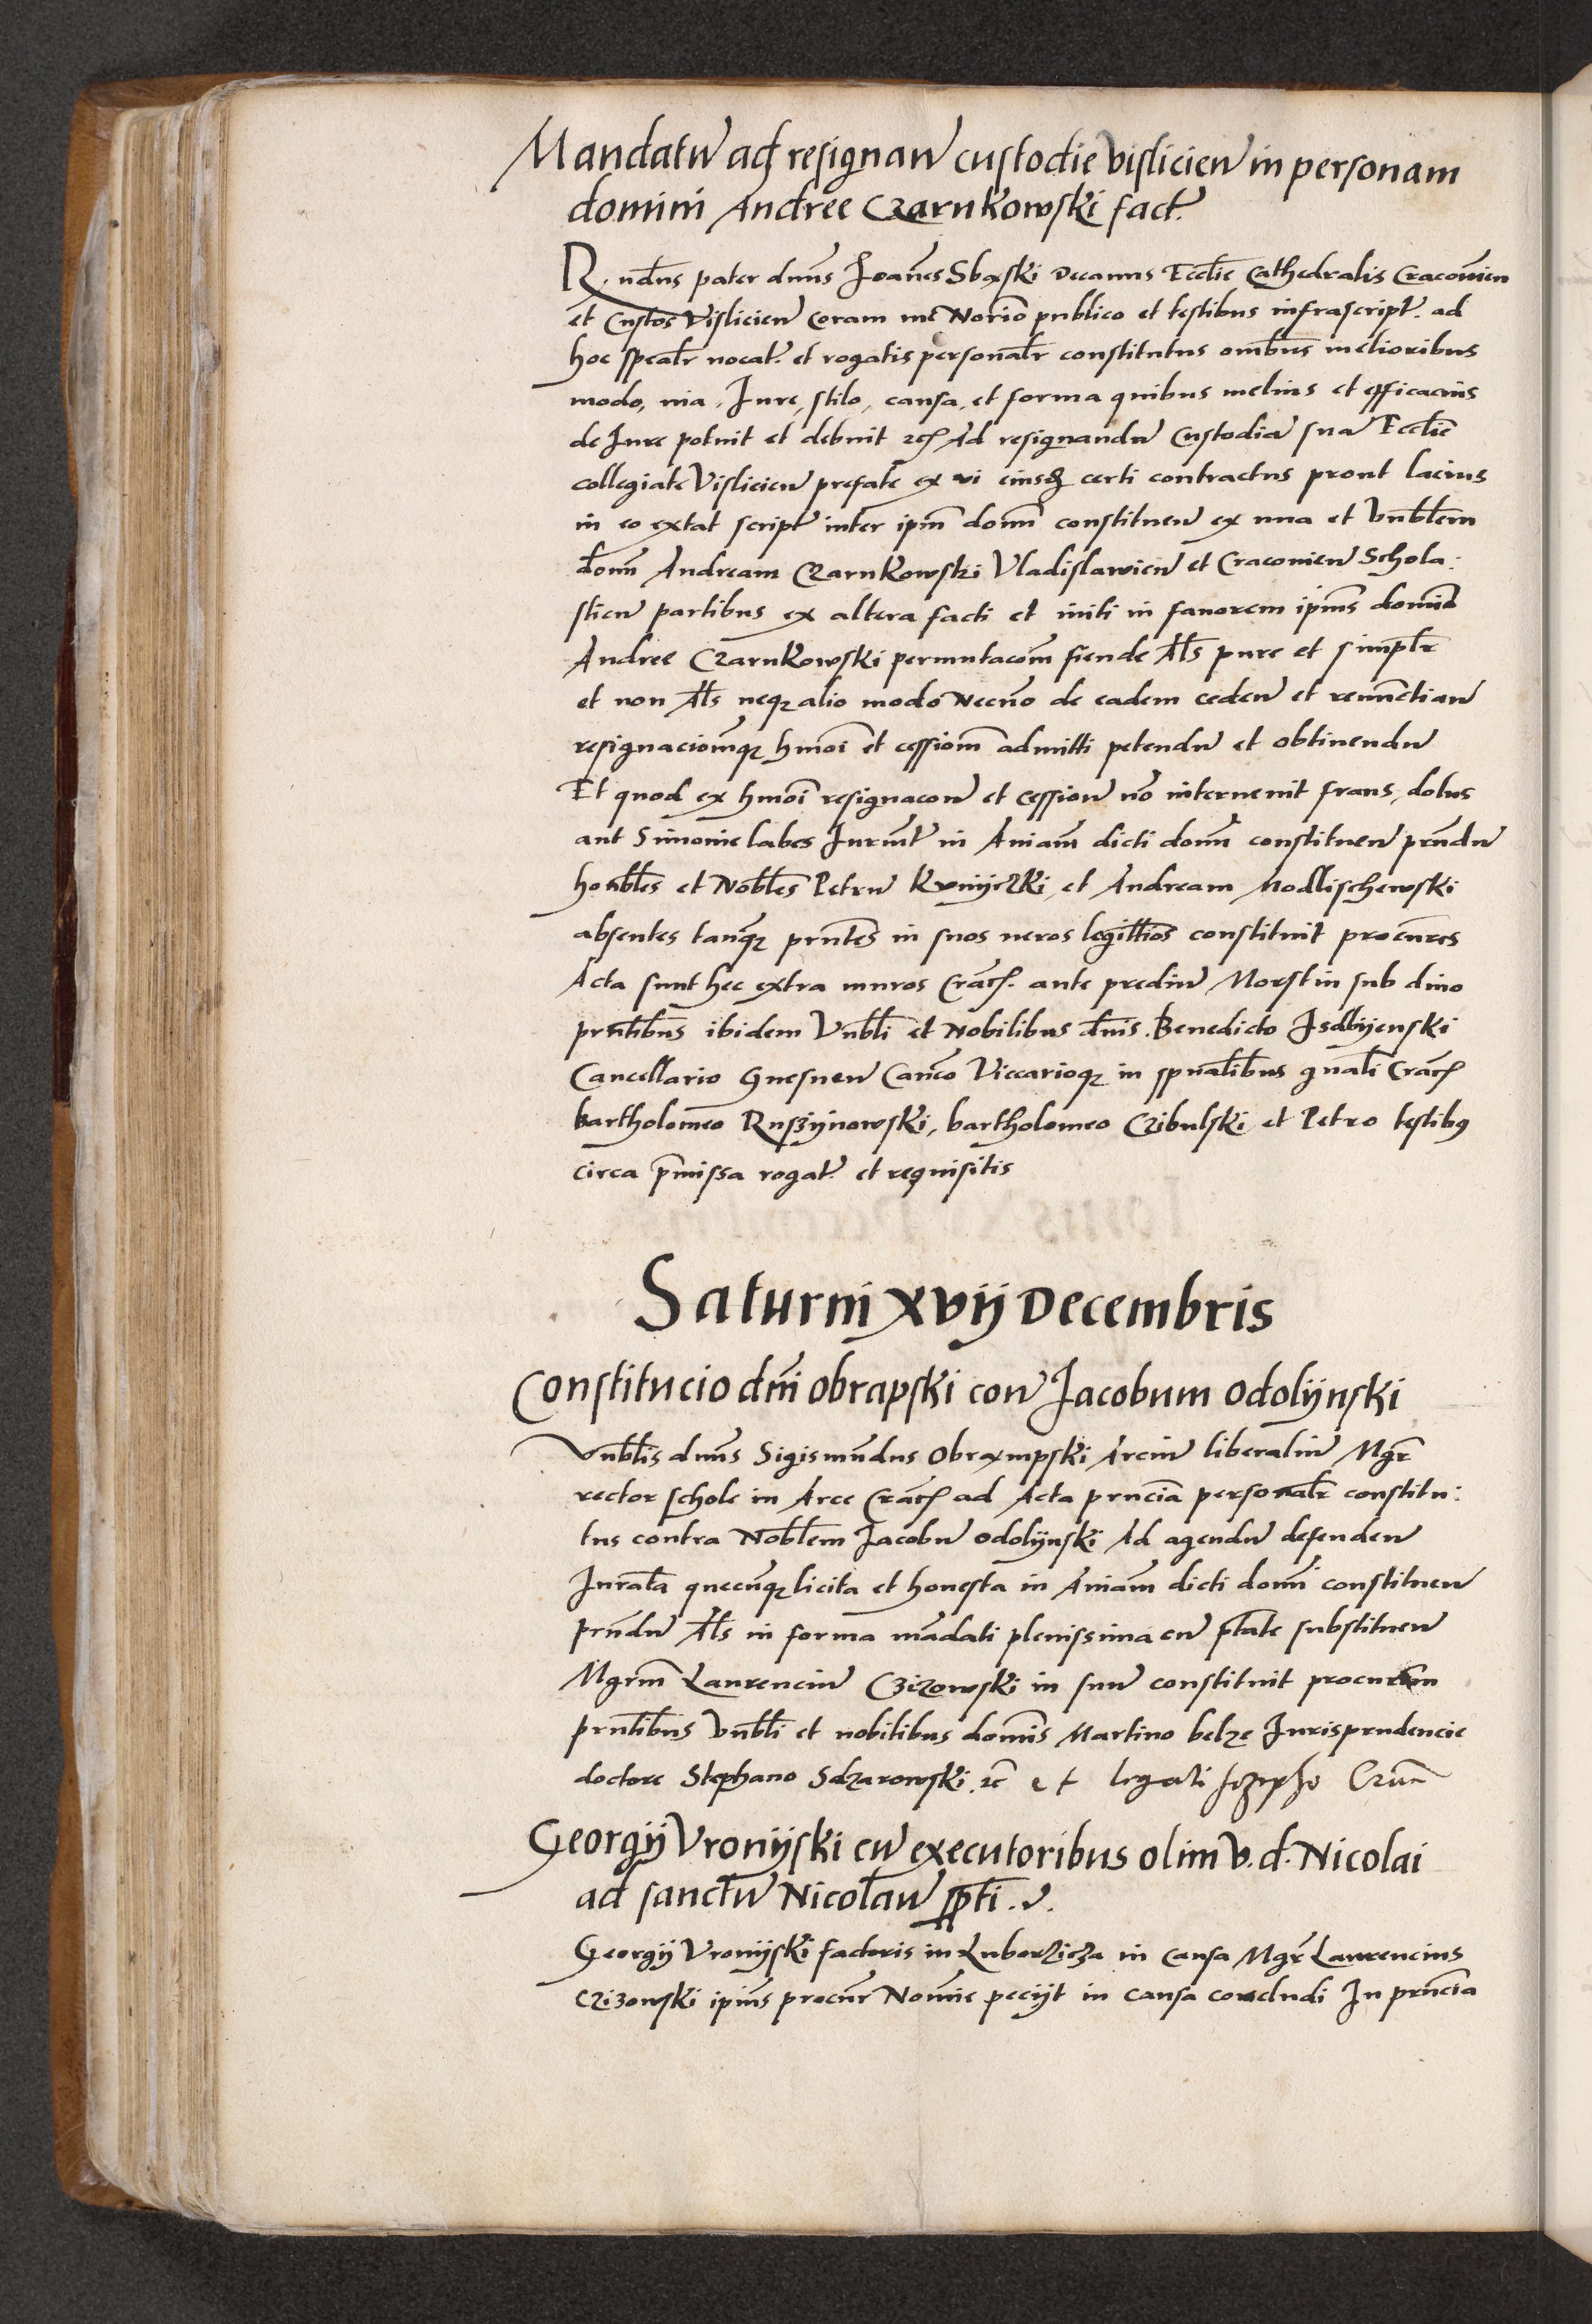 Mandatu͂ ad resignan͂ custodie Visliciен͂ in personam
domini Andree Czarnkowski fact.
R.ndus pater dnus Joanes Sbąski Decanus Ecclie Cathedralis Cracovien
et Custos Vislicien͂ coram me Norio publico et testibus infrascript. ad
hoc spealr vocat. et rogatis personalr constitutus ombus melioribus
modo, via, Jure, stilo, causa, et forma quibus melius et efficacius
de Jure potuit et debuit Ad resignandu͂ Custodia͂ sua͂ Ecclie
collegiate Vislicien͂ prefate ex vi certi contractus prout lacius
in eo extat script inter ipm domn constituen͂ ex una et Vnblem
domn Andream Czarnkowski Vladislavien͂ et Cracovien͂ Schola:
sticu͂ partibus ex altera facti et initi in favorem ipius domini
Andree Czarnkowski permutacom fiende Als pure et simplr
et non Als neqz alio modo Necno de eadem ceden͂ et renunctian͂
resignacionqz hmoi et cessiom admitti petendu͂ et obtinendu͂
Et quod ex hmoi resignacon͂ et cession͂ no intervenit fraus, dolus
aut Simonie labes Jurmt in Aniam dicti domn constituen͂ prndu͂
honbles et Nobles Petru͂ et Andream Modlischewski
absentes tanqz prntes in suos veros legittios constituit procures
Acta sunt hec extra muros Crac. ante prediu͂ Morstin sub dino
prntibus ibidem Vnbli et Nobilibus dnis. Benedicto Jsdbijenski
Cancellario Gnesnen͂ Canco Viccarioqz in spualibus gnali Crac
bartholomeo Ruszijnowski, bartholomeo Czibulski et Petro testibus
circa pmissa rogat. et requisitis
Saturni xvij Decembris
Constitucio dni Obrapski con͂ Jacobum Odolijnski
Vnblis dnus Sigismundus Obrąmpski Arciu͂ liberaliu͂ Mgr
rector schole in Arce Crac ad Acta prncia personalr constitu:
tus contra Noblem Jacobu͂ Odolijnski Ad agendu͂ defenden͂
Jurata quecunqz licita et honesta in Aniam dicti domn constituen͂
prndu͂ Als in forma madati plenissima cu͂ ptate substituen͂
Mgrm Laurenciu͂ Czizowski in suu͂ constituit procurem
prntibus Vnbli et nobilibus domis Martino belze Jurisprudencie
doctore Stephano Sdzarowski et
Georgij Vronijski cu͂ executoribus olim v. d. Nicolai
ad sanctu͂ Nicolau͂ ppti. v.
Georgij Vronijski factoris in Luborzicza in causa Mgr Laurencius
Czizowski ipius procur Nomie peciit in causa concludi In prncia